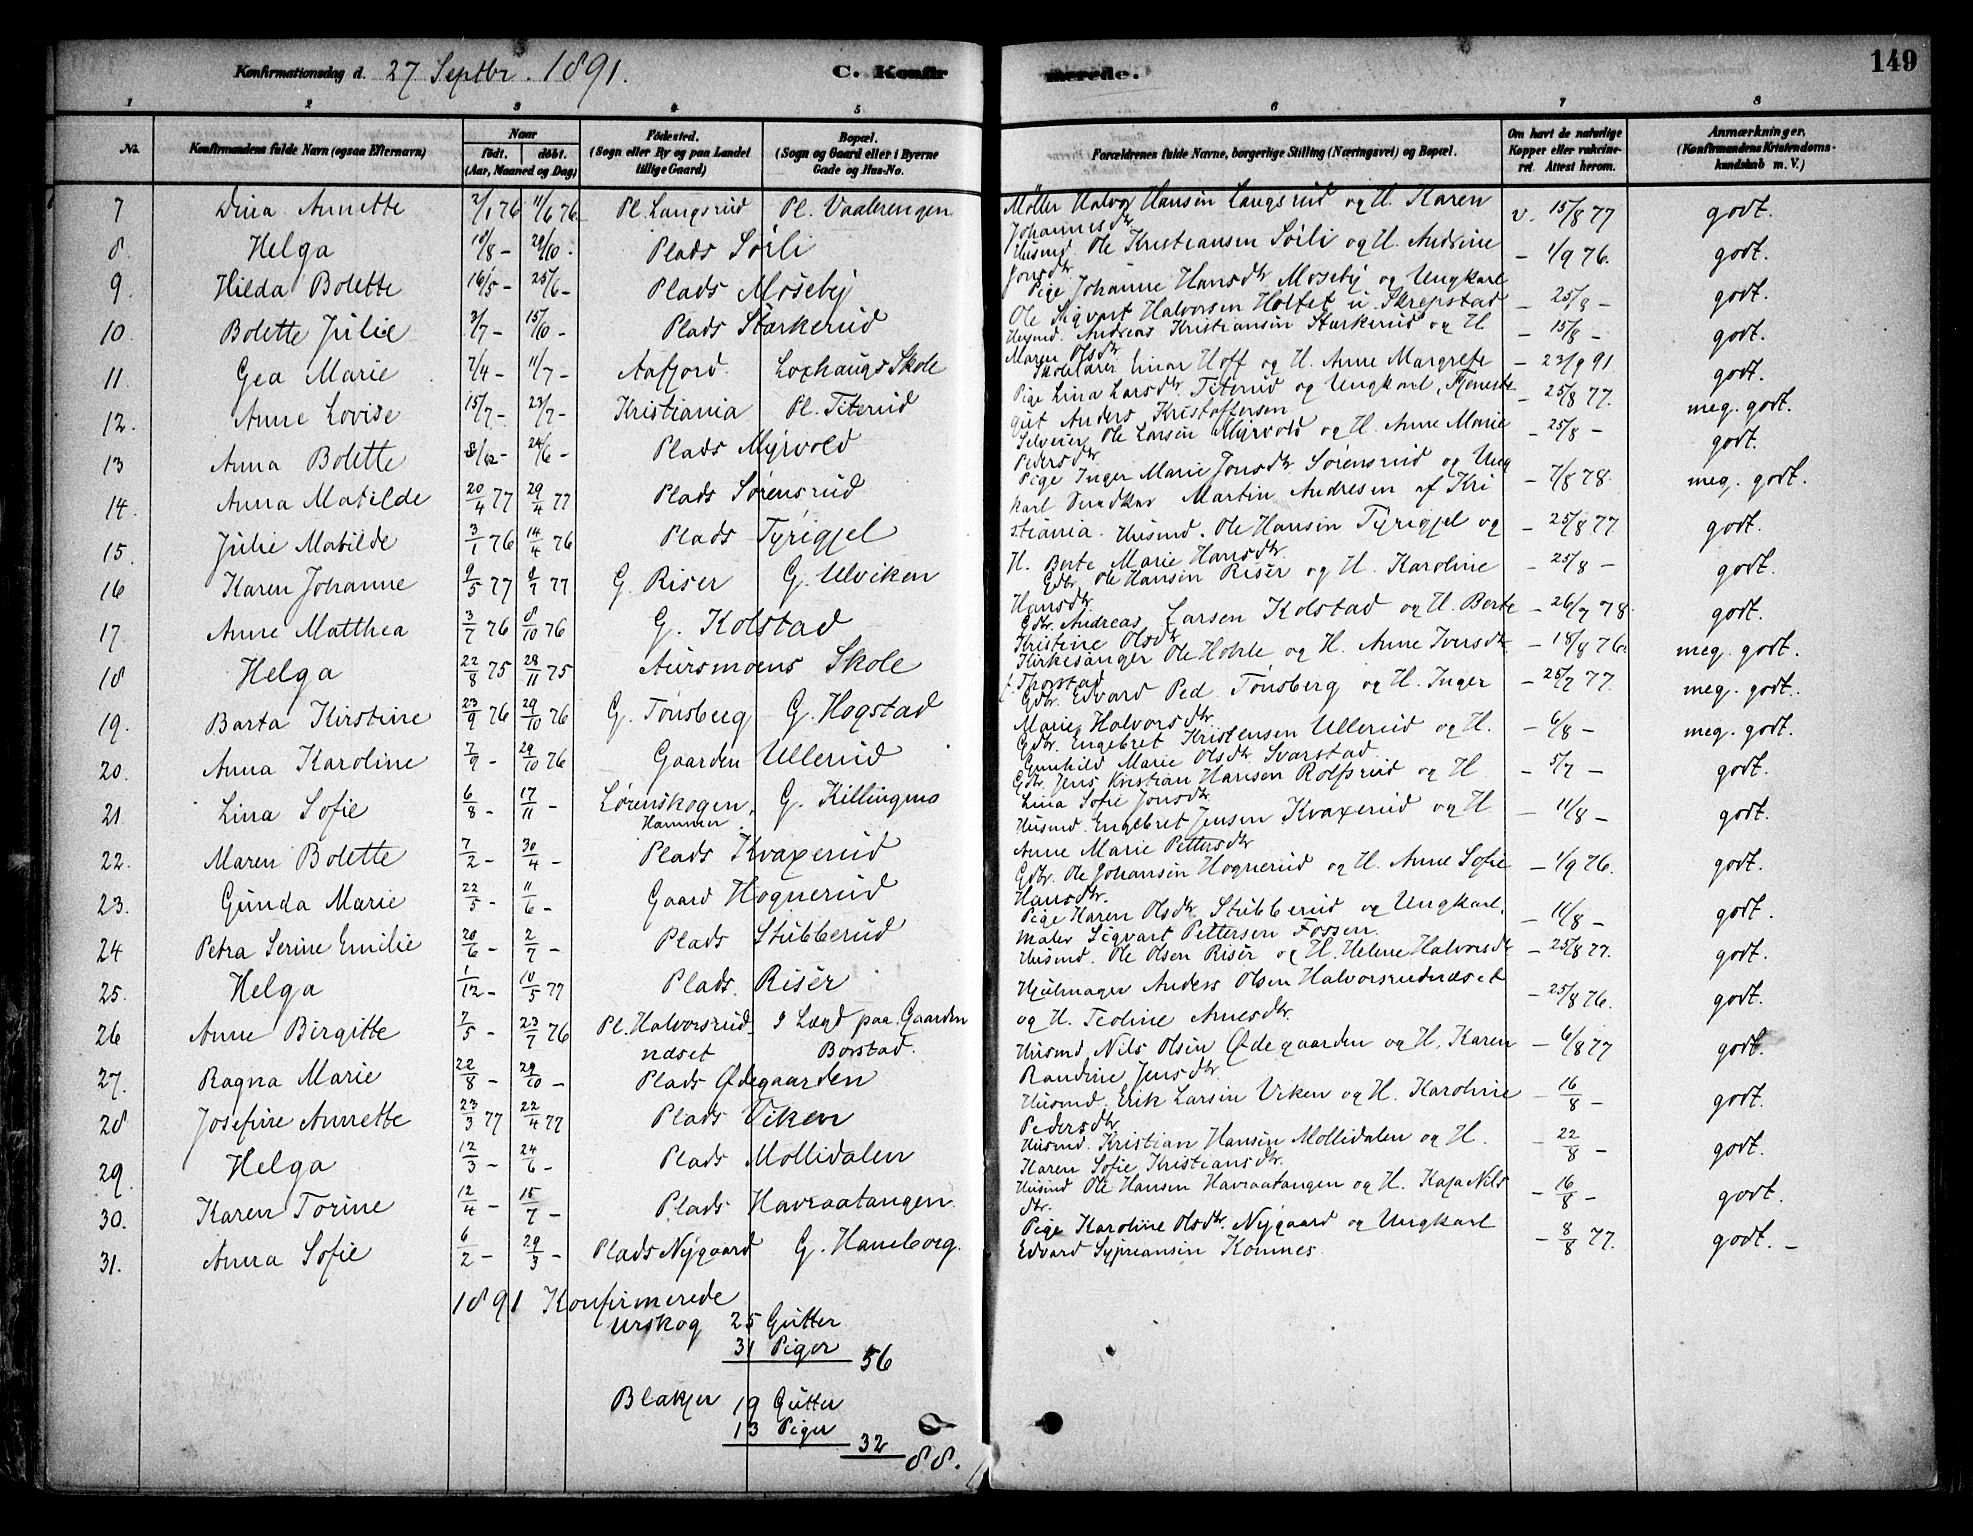 Konfirmationsdag d. 27 Septbr. 1891. C. Konfirmerede. 149
1 2 3 4 5 6 7 8
No. Konfirmandens fulde Navn (ogsaa Efternavn) Naar født. døbt. (Aar, Maaned og Dag) Fødested. (Sogn eller By og paa Landet tillige Gaard) Bopæl. (Sogn og Gaard eller i Byerne Gade og Hus-No. Forældrenes fulde Navne, borgerlige Stilling (Næringsvei) og Bopæl. Om havt de naturlige Kopper eller vakcineret. Attest herom. Anmærkninger. (Konfirmandens Kristendomskundskab m. V.)
7 Dina Annette 2/1 76 11/6 76 Pl. Langsrud Pl. Vaalerengen Møller Halvor Hansen Langsrud og H. Karen Johannesdtr v. 15/8 77 godt.
8. Helga 18/8 - 29/10 - Plads Sørli Husmd Ole Kristiansen Sørli og H. Andrine Jonsdtr - 1/9 76. godt.
9 Hilda Bolette 16/5 - 25/6 - Plads Moseby Pige Johanne Hansdtr Moseby og Ungkarl Ole Sigvart Halvorsen Holtet u. Skrepstad - 25/8 - godt.
10. Bolette Julie 3/7 - 15/10 - Plads Stærkerud Husmd. Andreas Kristiansen Stærkerud og H Maren Olsdtr - 15/8 - godt.
11. Gea Marie 7/4 - 11/7 - Aafjord. Loxhaugs Skole Skolelærer Einar Hoff og H. Anne Margrete - 23/9 91 godt.
12. Anne Lovise 15/7 - 23/7 - Kristiania Pl. Titerud Pige Lina Larsdtr. Titerud og Ungkarl, Tjenestegut Anders Kristoffersen - 25/8 77. meg. godt.
13 Anna Bolette 8/12 - 24/6 - Plads Myrvold Selveier Ole Larsen Myrvold og H. Anne Marie Pedersdtr - 25/8 - godt.
14. Anna Matilde 20/4 77 29/4 77 Plads Sørensrud Pige Inger Marie Jonsdtr Sørensrud og Ungkarl Martin Andresen af Kristiania. - 7/8 78. meg. godt.
15. Julie Matilde 3/1 76 14/4 76 Plads Tyrigjel Husmd. Ole Hansen Tyrigjel og H. Berte Marie Hansdtr. - 25/8 77 godt.
16 Karen Johanne 9/5 77 8/7 77 G. Riser G. Ulviken Gdbr. Ole Hansen Riser og H. Karoline Hansdtr. - 25/8 - godt.
17. Anne Matthea 3/7 76 8/10 76 G. Kolstad Gdbr. Andreas Larsen Kolstad og H. Berte Kristine Olsdtr - 26/7 78. godt.
18 Helga 22/8 75 28/11 75 Aursmoens Skole Kirkesanger Ole Hohle og H. Anne Iversdtr f. Thorstad - 18/8 76. meg. godt.
19. Barta Kirstine 23/9 76 29/10 76 G. Tønsberg G. Hogstad Gdbr. Edvard Ped. Tønsberg og H. Inger Marie Halvorsdtr. - 25/7 77. meg. godt.
20. Anna Karoline 7/9 - 29/10 76 Gaarden Ullerud Gdbr. Engebret Kristensen Ullerud og H. Gunhild Marie Olsdtr Svarstad - 6/8 - meg. godt.
21. Lina Sofie 6/8 - 17/11 - Lørenskogen, Hammer G. Killingmo Gdbr Jens Kristian Hansen Rolfsrud og H Lina Sofie Jonsdtr. - 5/7 - godt.
22. Maren Bolette 7/2 - 30/4 - Plads Kvaxerud Husmd. Engebret Jensen Kvaxerud og H Anne Marie Pettersdtr - 11/8 - godt.
23. Gunda Marie 22/5 - 11/6 - Gaard Hognerud Gdbr. Ole Johansen Hognerud og H. Anne Sofie Hansdtr. - 1/9 76. godt.
24 Petra Serine Emilie 20/6 - 2/7 - Plads Stubberud Pige Karen Olsdtr. Stubberud og Ungkarl. Maler Sigvart Pettersen Fossen. - 11/8 - godt.
25. Helga 1/12 - 10/5 77 Plads Riser Husmd. Ole Olsen Riser og H. Helene Halvorsdtr - 25/8 77. godt.
26 Anne Birgitte 7/5 - 23/7 76 Pl. Halvorsrudnæset I Lægd paa Gaarden Borstad. Hjulmager Anders Olsen Halvorsrudnæset og H. Teoline Arnesdtr. - 25/8 76. godt.
27. Ragna Marie 22/8 - 29/10 - Plads Ødegaarden Husmd Nils Olsen Ødegaarden og H. Karen Randine Jensdtr. - 6/8 77 godt.
28 Josefine Annette 23/3 77 22/4 77 Plads Viken Husmd. Erik Larsen Viken og H. Karoline Pedersdtr - 16/8 - godt.
29. Helga 12/3 - 24/6 - Plads Mollidalen Husmd. Kristian Hansen Mollidalen og H. Karen Sofie Kristiansdtr. - 22/8 - godt.
30. Karen Torine 12/4 - 15/7 - Plads Havraatangen Husmd Ole Hansen Havraatangen og H. Kaja Nilsdtr. - 16/8 - godt.
31. Anna Sofie 6/2 - 29/3 - Plads Nygaard G. Haneborg. Pige Karoline Olsdtr. Nygaard og Ungkarl Edvard Sypriansen Komnes. - 8/8 77. godt. -
1891 Konfirmerede
Urskog 25 Gutter
31 Piger 56
Blakjer 19 Gutter
13 Piger 32
88.